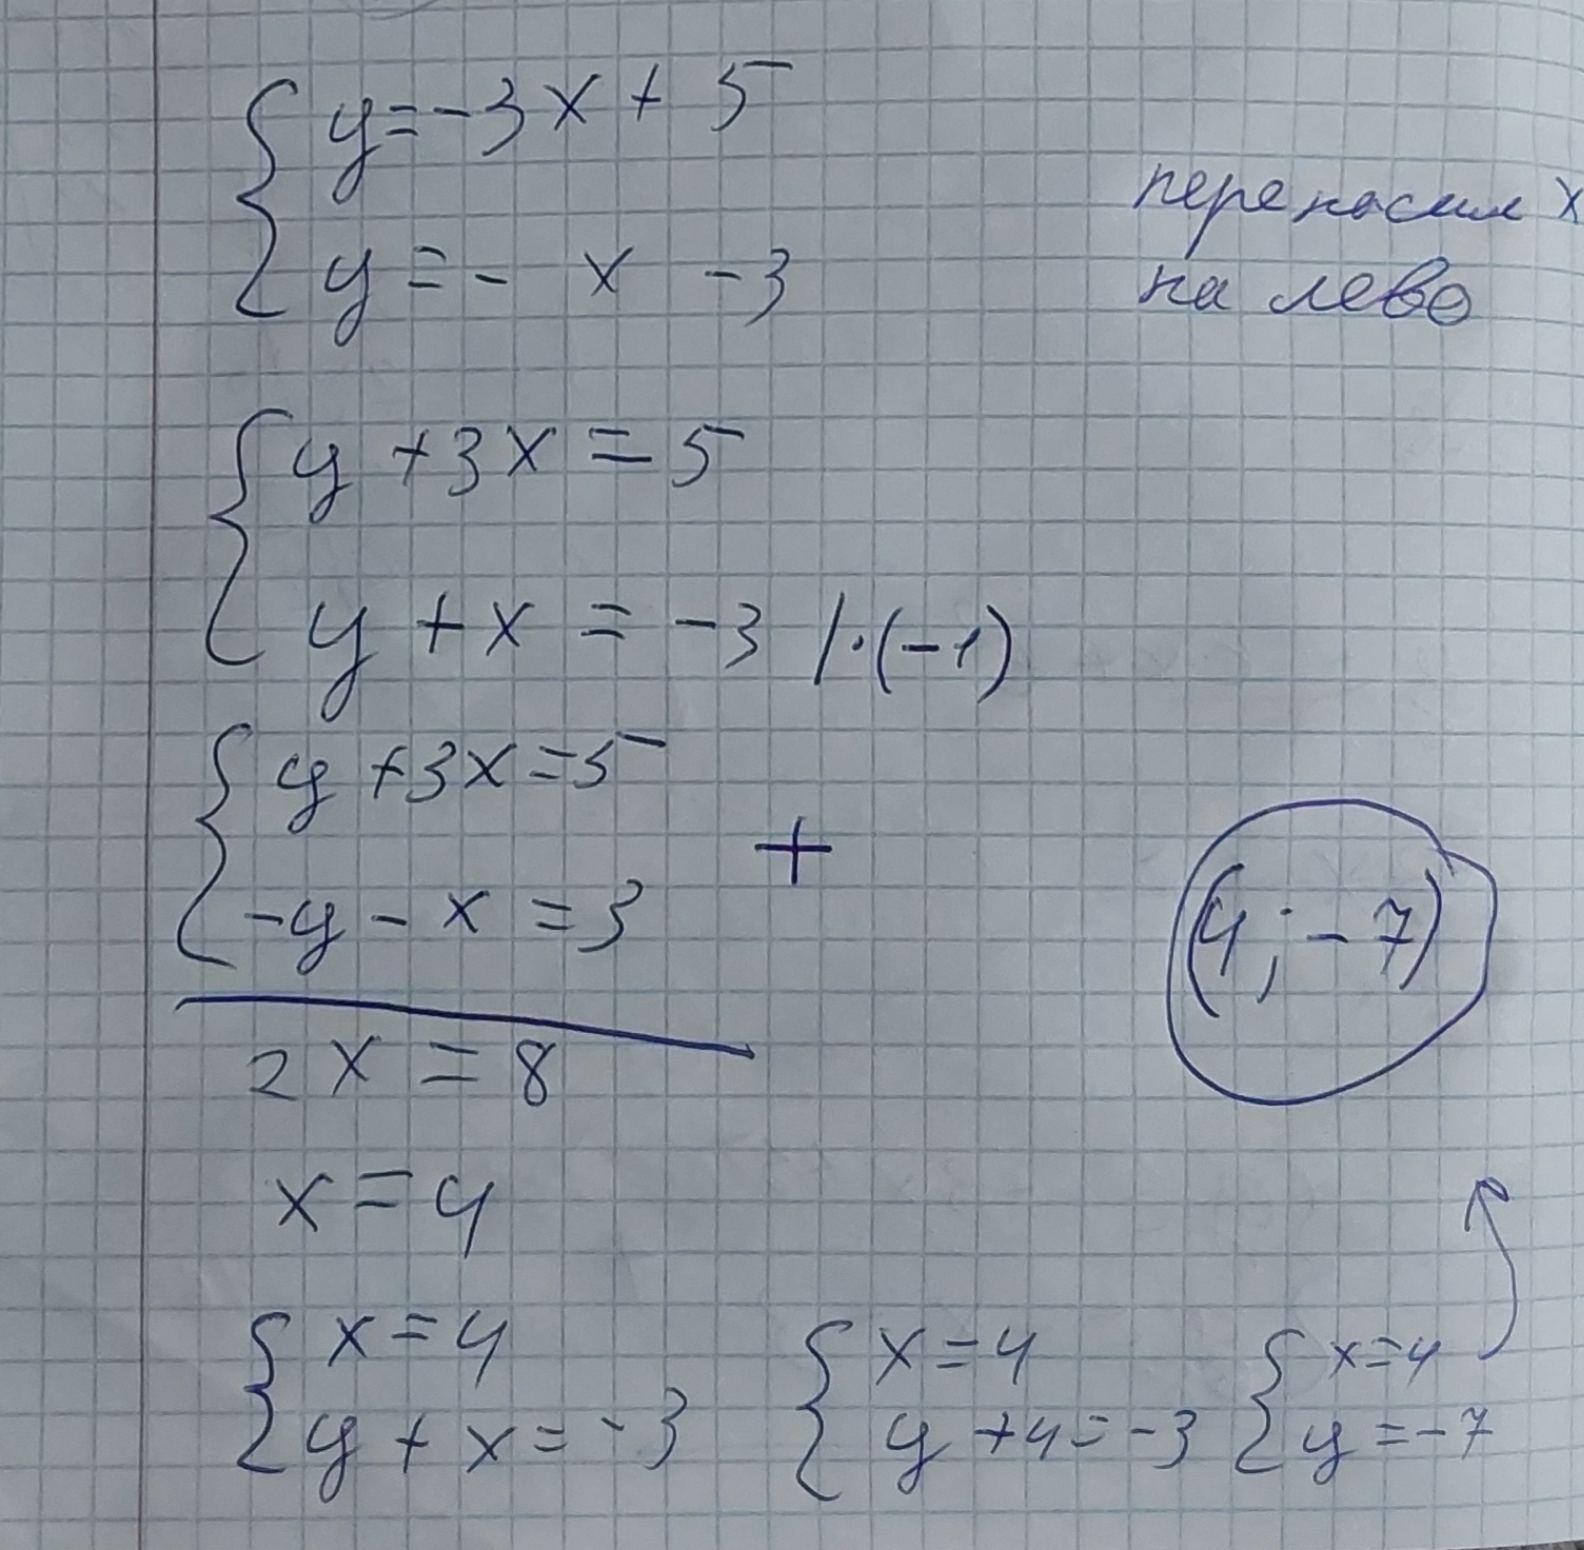 y = -3x + 5
y = - x - 3
переносим x
на лево
y + 3x = 5
y + x = -3 /·(-1)
y + 3x = 5
+
-y - x = 3
2x = 8
x = 4
(4; -7)
x = 4
y + x = -3
x = 4
y + 4 = -3
x = 4
y = -7